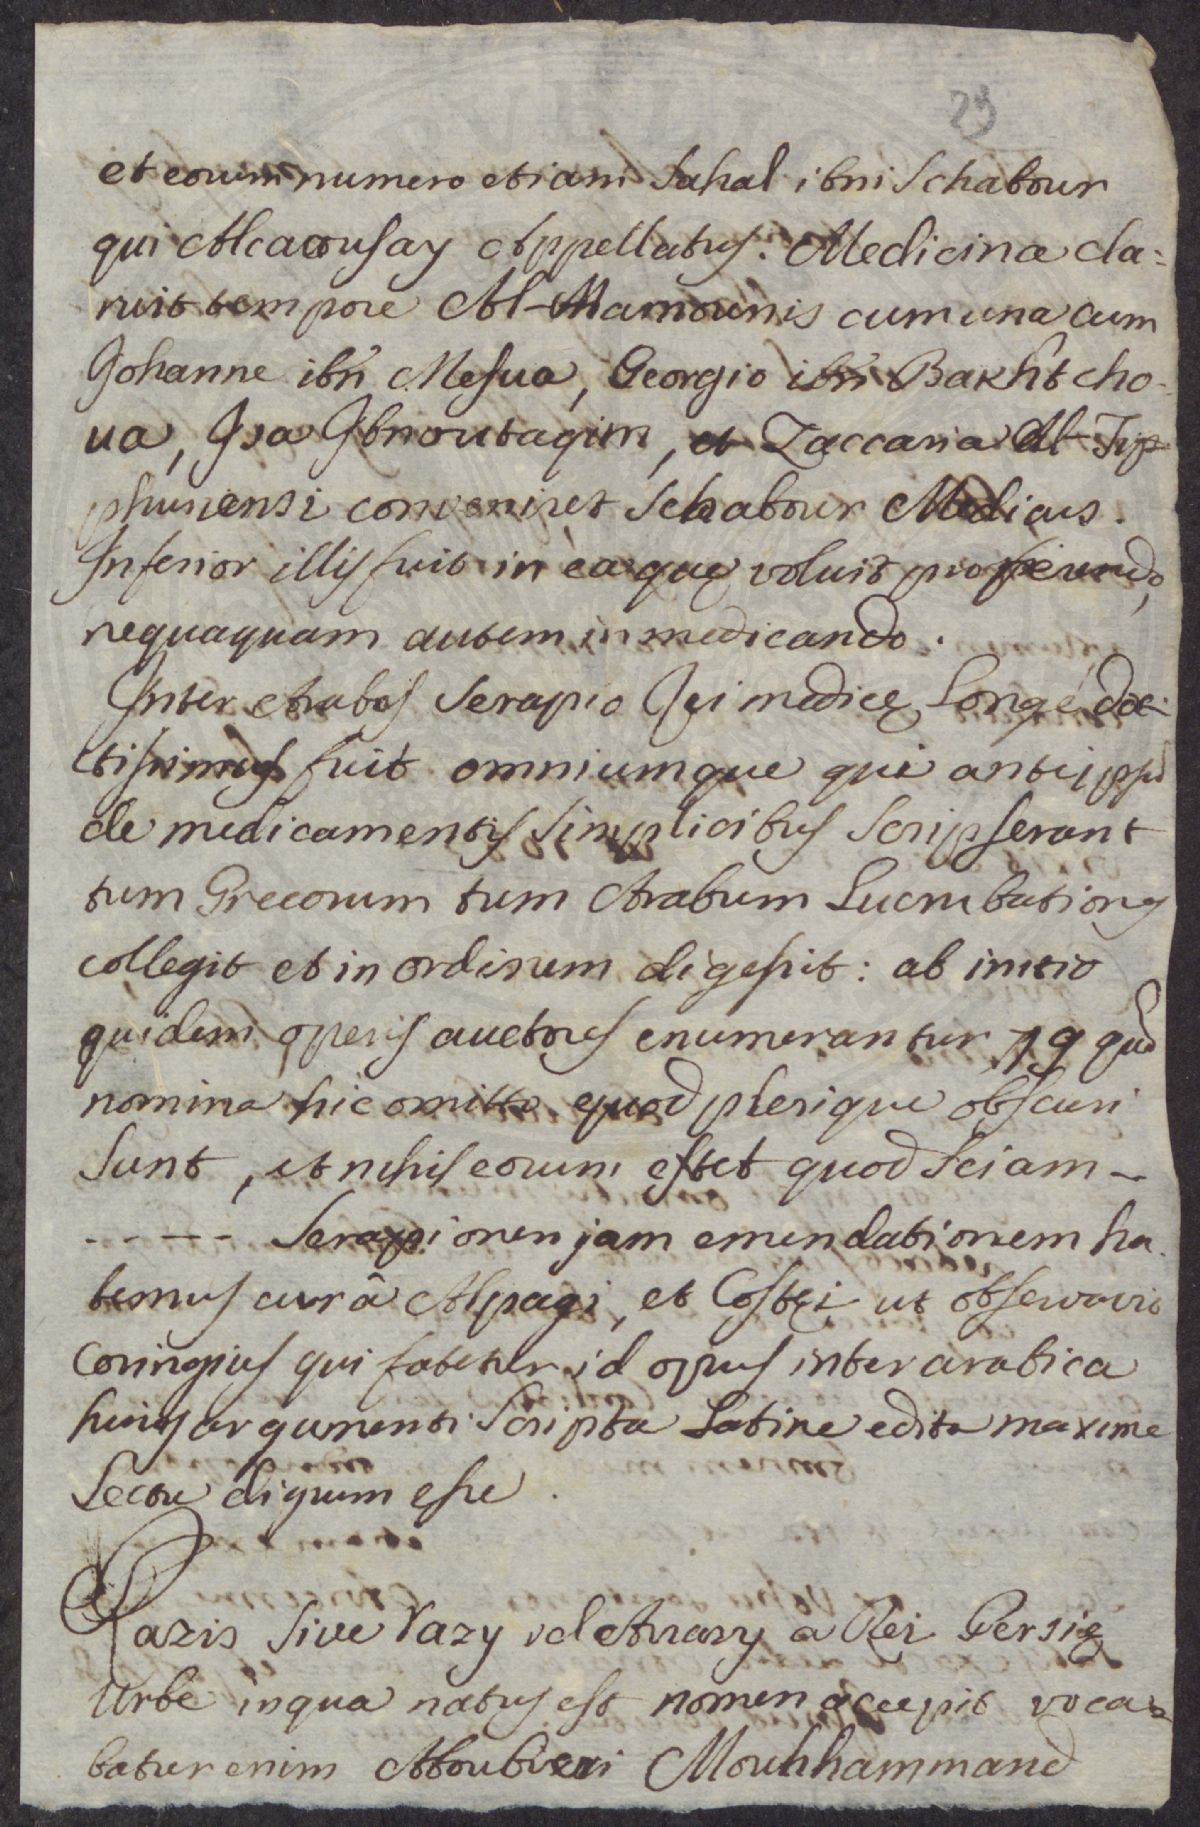 23
et eorum numero etiam Sahal ibni Schabour
qui Alcaousay Appellatus. Medicina cla=
ruit tempore Al-Mamounis cum una cum
Johanne ibn Mesua, Georgio ibn Bakht cho-
ua, Isa Ibnoutaqim, et Zaccaria Al-Tip
phuriensi conveniret Schabour Medicus.
Inferior illis fuit in ea quę voluit proferundo,
nequaquam autem in medicando.
Inter Arabes Serapio Rei medicę Longé doc-
tissimus fuit omniumque qui ante ipsū
de medicamentis simplicibus scripserant
tum Grecorum tum Arabum Lucubationes
collegit et in ordinem digessit: ab initio
quidem operis auctores enumerantur 19 quoř
nomina hic omitto quod plerique obscuri
sunt, et nihil eorum extet quod sciam -
- - - - - Serapionen jam emendationem ha-
bemus curâ Alpagi, et Costęi ut observavit
Coringius qui fatetur id opus inter arabica
huius argumenti scripta Latine edita maxime
Lectu dignum esse.
Razis sive Razy vel Arrazy a Rei Persię
Urbe in qua natus est nomen accepit voca=
batur enim Aboubieri Mouhhammand